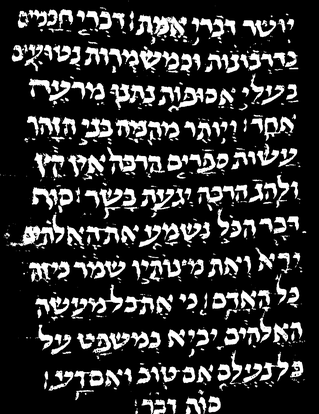 יושר דברי אמת: דברי חכמים
כדרבונות וכמשמרות נטועים
בעלי אסופות נתנו מרעה
אחד: ויותר מהמה בני הזהר
עשות ספרים הרבה אין קץ
ולהג הרבה יגעת בשר: סוף
דבר הכל נשמע את האלהים
ירא ואת מצותיו שמר כי זה
כל האדם: כי את כל מעשה
האלהים יביא במשפט על
כל נעלם אם טוב ואם רע:
סוף דבר: